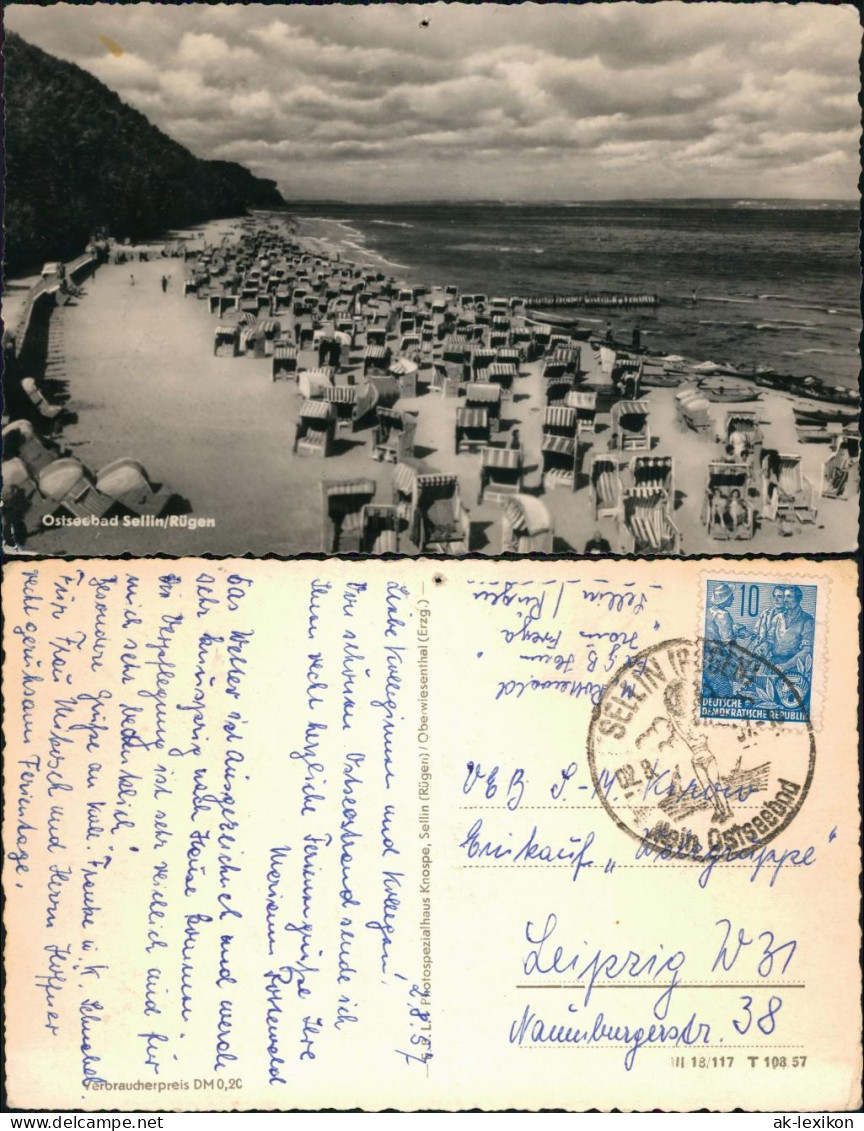 Ostseebad Sellin/Rügen
Liebe Kolleginnen und Kollegen!
2.8.57
Vom schönen Ostseestrand sende ich
Ihnen recht herzliche Feriengrüße Ihre
Mariann Rothewald
Das Wetter ist ausgezeichnet und werde
sehr knusprig nach Hause kommen.
Die Verpflegung ist sehr reichlich und für
mich sehr bekömmlich
Besondere Grüße an Koll. Franke u. K.
Für Frau Nitzsch und Herrn Höpfner
recht geruhsame Ferientage.
Verbraucherpreis DM 0,20
Photospezialhaus Knospe, Sellin (Rügen) / Oberwiesenthal (Erzg.)
M. Rothewald
Heim
"Haus Freya"
Sellin / Rügen
10
DEUTSCHE
DEMOKRATISCHE REPUBLIK
SELLIN (RÜGEN)
Dein Ostseebad
VEB
Einkauf
Leipzig W31
Naumburgerstr. 38
III 18/117 T 108 57
ak-lexikon